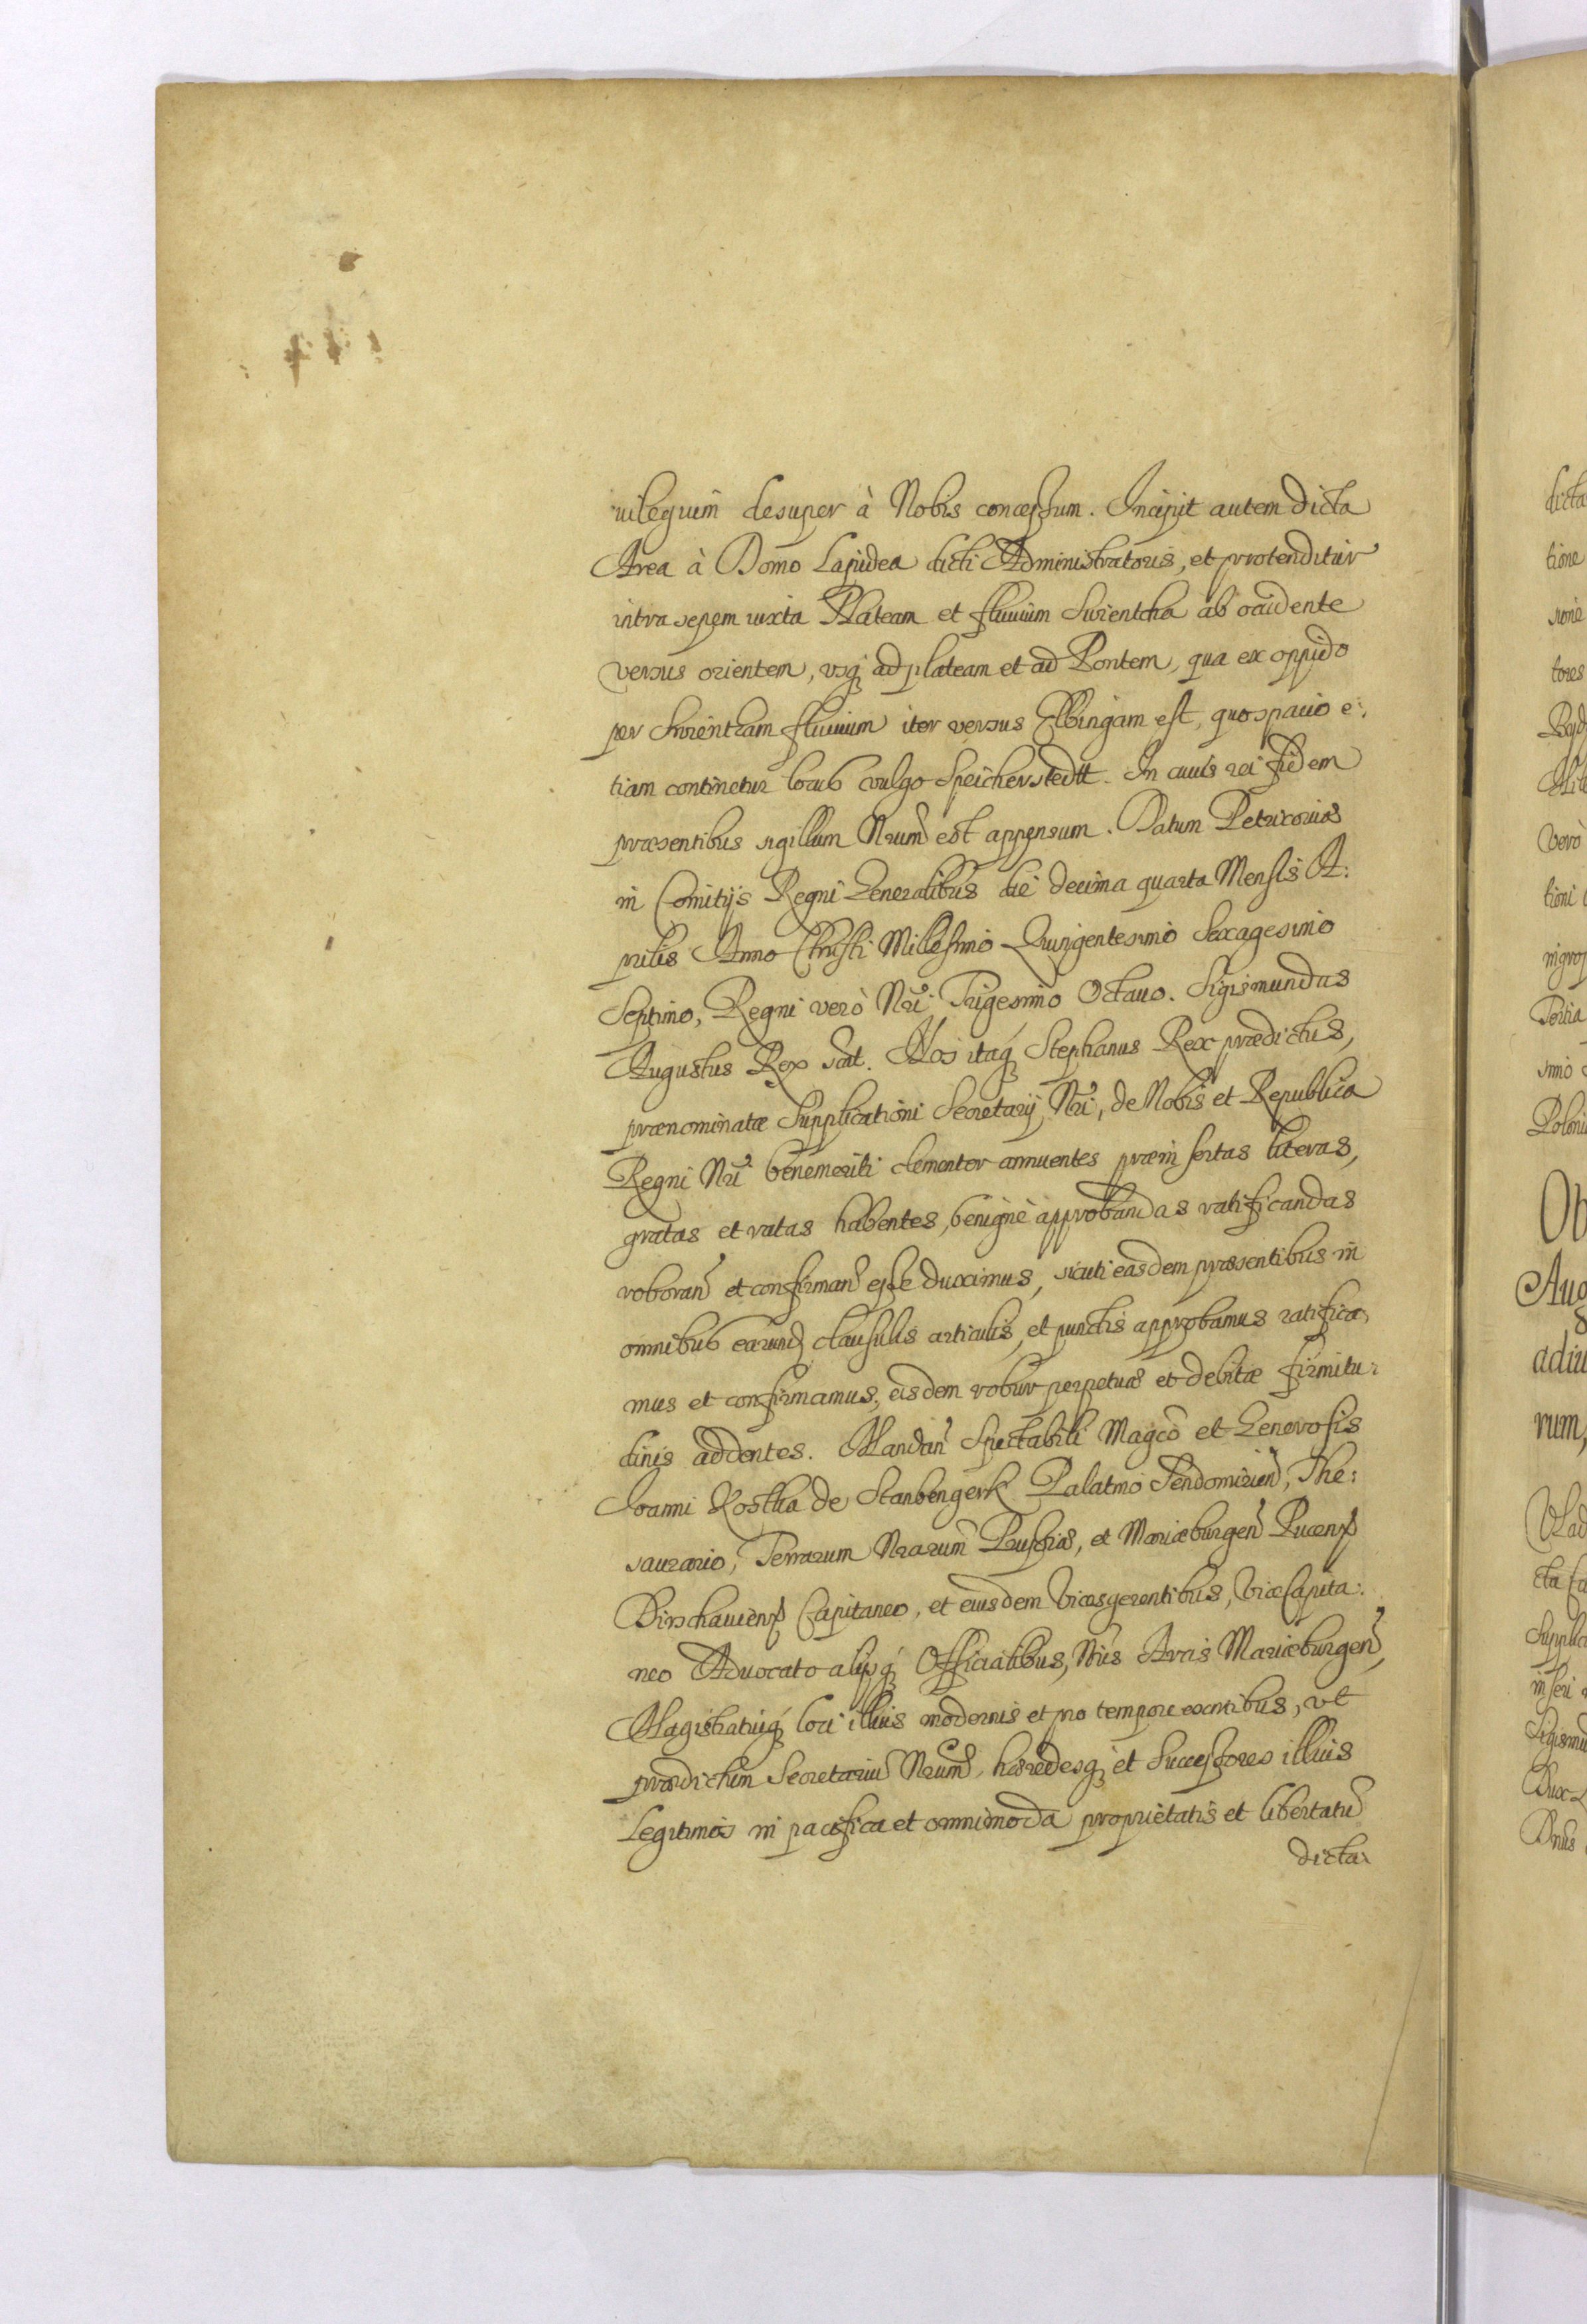 uilegium desuper à Nobis concessum. Incipit autem dicta
Area à Domo Lapidea dicti Administratoris, et protenditur
intra sepem iuxta Plateam et fluuium Swientcha ab occidente
versus orientem, vsq; ad plateam et ad Pontem, qua ex oppido
per Swientzam fluuium iter versus Elbingam est, quo spacio e:
tiam continetur locus vulgo Speicherstedtt. In cuius rei fidem
præsentibus sigillum Nrum est appensum. Datum Petricouiæ
in Comitijs Regni Generalibus die decima quarta Mensis A:
prilis Anno Christi Millesimo Quingentesimo Sexagesimo
Septimo, Regni verò Nri Trigesimo Octauo. Sigismundus
Augustus Rex sst. Nos itaq; Stephanus Rex prædictus,
prænominatæ Supplicationi Secretarij Nri, de Nobis et Republica
Regni Nri benemeriti clementer annuentes præinsertas literas,
gratas et ratas habentes, benignè approbandas ratificandas
roboran et confirman esse duximus, sicuti easdem præsentibus in
omnibus earund clausulis articulis, et punctis approbamus ratifica,
mus et confirmamus, eisdem robur perpetuæ et debitæ firmitu:
dinis addentes. Mandan Spectabili Magco et Generosis
Joanni Kostka de Stanbengerk Palatino Sendomirien, The:
saurario, Terrarum Nrarum Prussiæ, et Mariæburgen Pucens
Dirschauiens Capitaneo, et eiusdem Vicesgerentibus, ViceCapita:
neo Aduocato alijsq; Officialibus, Nris Arcis Mariæburgen,
Magistratuiq; loci illius modernis et pro tempore exntibus, vt
prædictum Secretariu Nrum, hæredesq; et Successores illius
Legitimos in pacifica et omnimoda proprietatis et libertatu
dicta:
dicta
tione
sione
tores
verò
tioni
Polon
Ob
Aug
adiu
rum,
Mad
cta
Supplic
inseri
Sigismu
Dux
Dnus